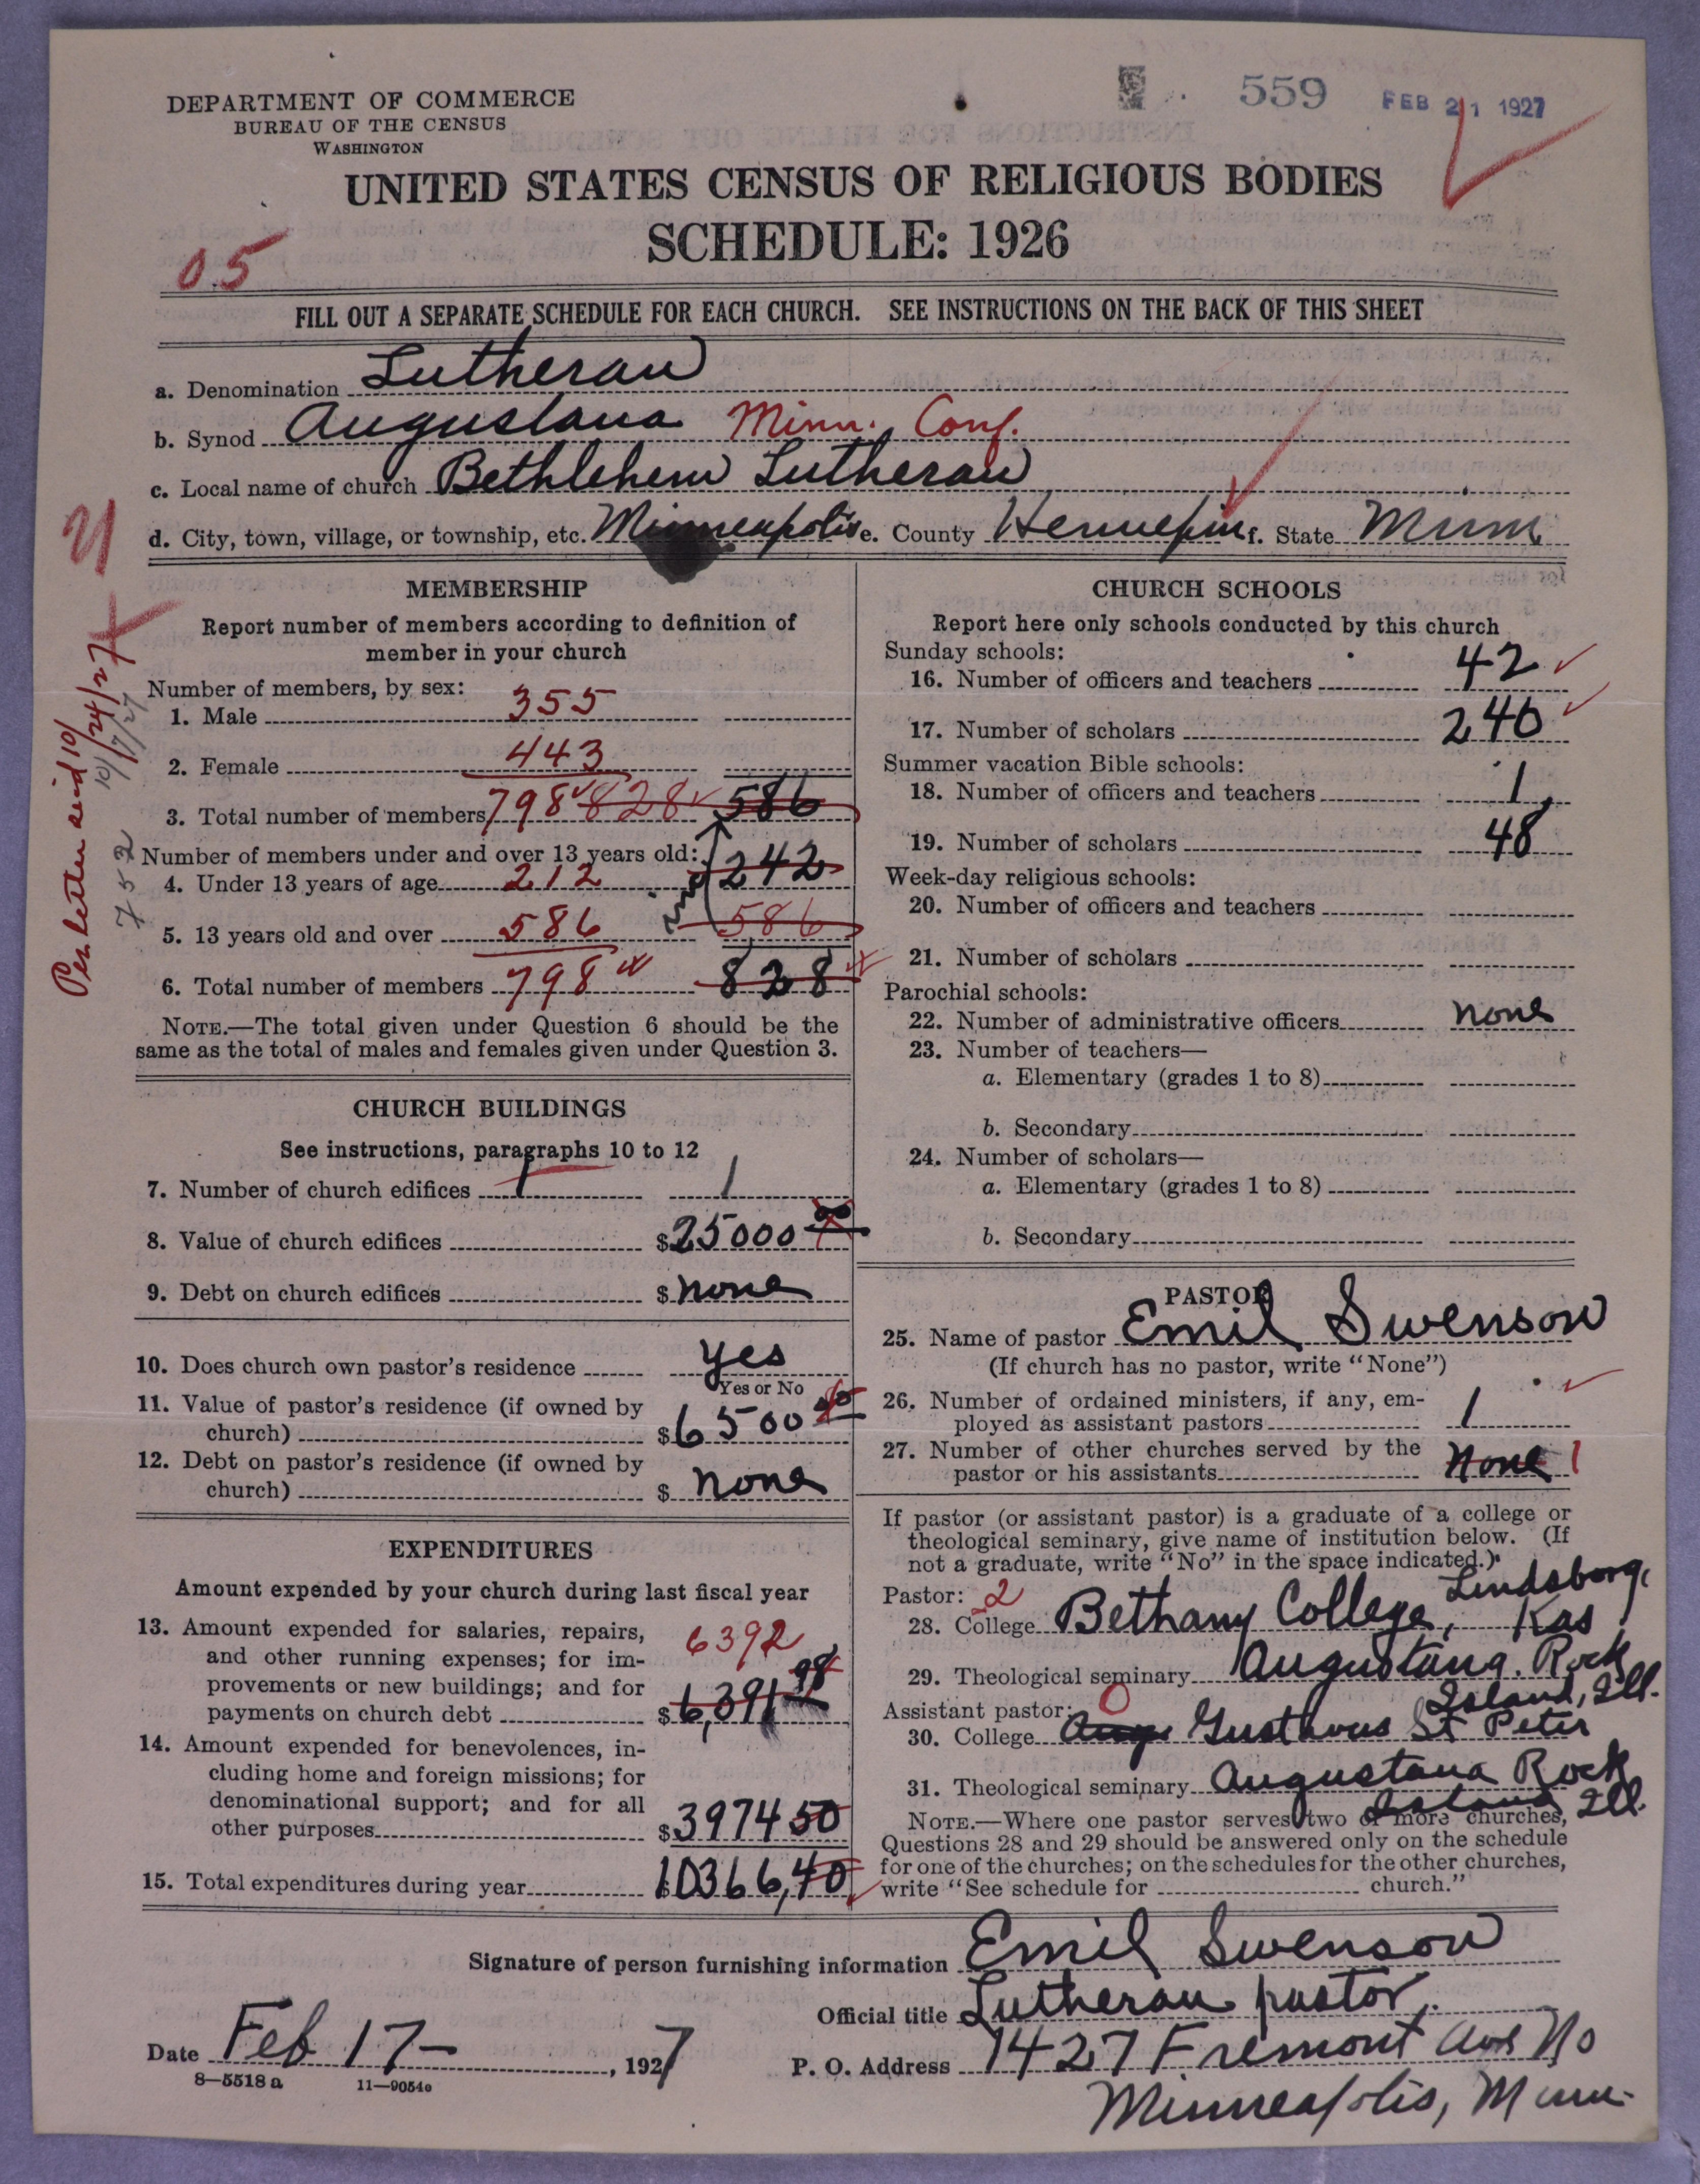 559 FEB 21 1927
DEPARTMENT OF COMMERCE
BUREAU OF THE CENSUS
WASHINGTON
UNITED STATES CENSUS OF RELIGIOUS BODIES
SCHEDULE: 1926
05
FILL OUT A SEPARATE SCHEDULE FOR EACH CHURCH. SEE INSTRUCTIONS ON THE BACK OF THIS SHEET
a. Denomination Lutheran
b. Synod Augustana Minn. Conf.
c. Local name of church Bethlehem Lutheran
d. City, town, village, or township, etc. Minneapolis e. County Hennepin f. State Minn.
Per letter 10/24/27
10/7/27
752
MEMBERSHIP
Report number of members according to definition of
member in your church
Number of members, by sex:
1. Male 355
2. Female 443
3. Total number of members 798 828 586
Number of members under and over 13 years old:
4. Under 13 years of age 212 242
5. 13 years old and over 586 586
6. Total number of members 798 828
NOTE.—The total given under Question 6 should be the
same as the total of males and females given under Question 3.
CHURCH BUILDINGS
See instructions, paragraphs 10 to 12
7. Number of church edifices 1 1
8. Value of church edifices $25000
9. Debt on church edifices $ none
10. Does church own pastor's residence yes
Yes or No
11. Value of pastor's residence (if owned by
church) $6500
12. Debt on pastor's residence (if owned by
church) $ none
EXPENDITURES
Amount expended by your church during last fiscal year
13. Amount expended for salaries, repairs,
and other running expenses; for im-
provements or new buildings; and for
payments on church debt $6,391 98
6392
14. Amount expended for benevolences, in-
cluding home and foreign missions; for
denominational support; and for all
other purposes $3974 50
15. Total expenditures during year $10366,40
CHURCH SCHOOLS
Report here only schools conducted by this church
Sunday schools:
16. Number of officers and teachers 42
17. Number of scholars 240
Summer vacation Bible schools:
18. Number of officers and teachers 1
19. Number of scholars 48
Week-day religious schools:
20. Number of officers and teachers
21. Number of scholars
Parochial schools:
22. Number of administrative officers none
23. Number of teachers—
a. Elementary (grades 1 to 8)
b. Secondary
24. Number of scholars—
a. Elementary (grades 1 to 8)
b. Secondary
PASTOR
25. Name of pastor Emil Swenson
(If church has no pastor, write "None")
26. Number of ordained ministers, if any, em-
ployed as assistant pastors 1
27. Number of other churches served by the
pastor or his assistants none 1
If pastor (or assistant pastor) is a graduate of a college or
theological seminary, give name of institution below. (If
not a graduate, write "No" in the space indicated.)
Pastor: 2
28. College Bethany College, Lindsborg, Kas
29. Theological seminary Augustana. Rock Island, Ill.
Assistant pastor: 0
30. College Aug Gusthavus St Peter
31. Theological seminary Augustana Rock Island, Ill.
NOTE.—Where one pastor serves two or more churches,
Questions 28 and 29 should be answered only on the schedule
for one of the churches; on the schedules for the other churches,
write "See schedule for church."
Signature of person furnishing information Emil Swenson
Official title Lutheran pastor.
Date Feb 17-, 1927 P. O. Address 1427 Fremont Ave No
Minneapolis, Minn.
8—5518 a 11—9054o